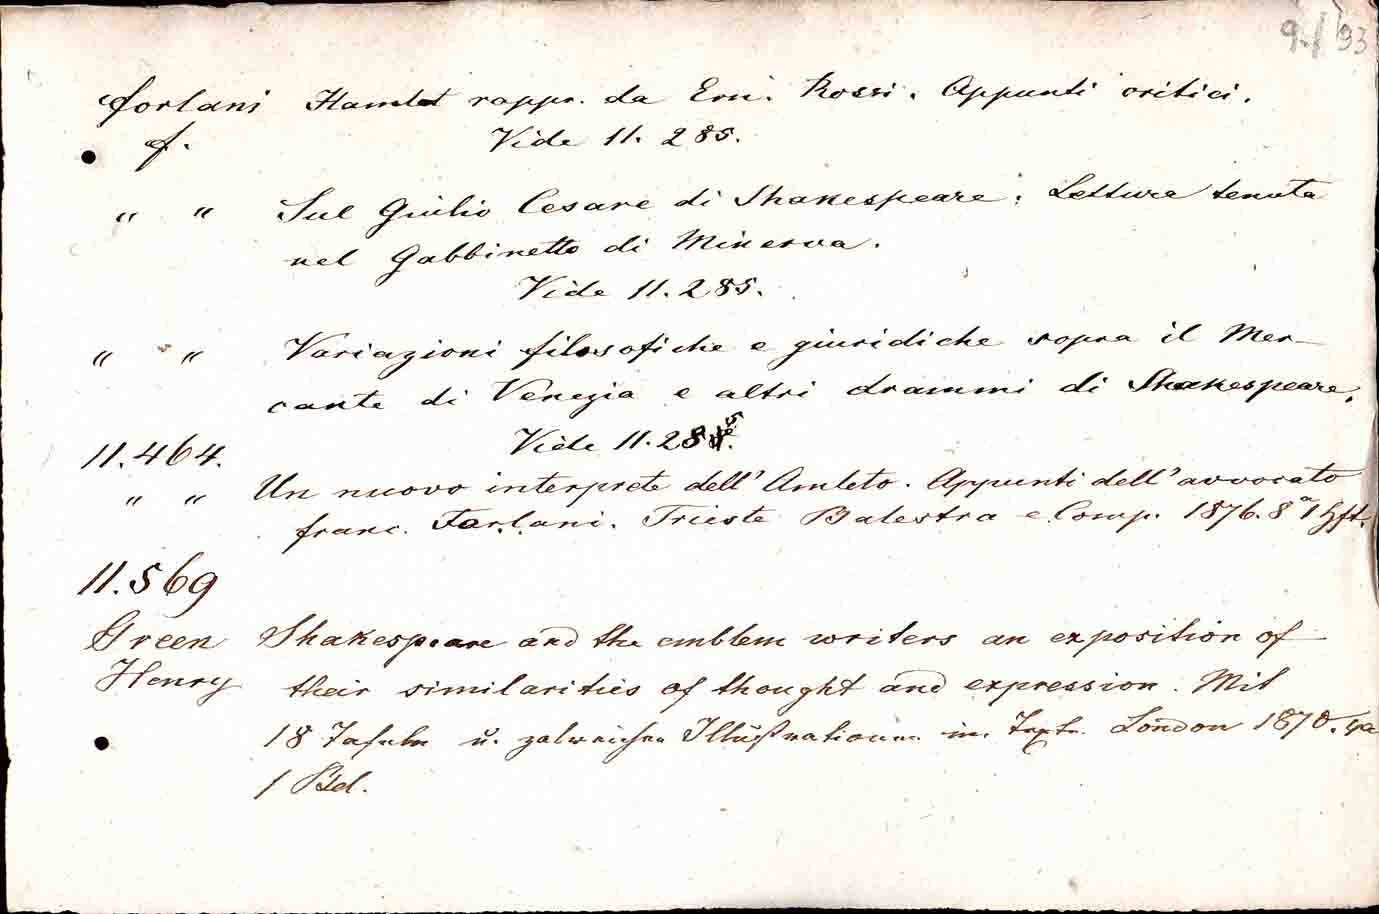 91/93
Forlani Hamlet rappr. da Ern. Rossi. Appunti critici.
f. Vide 11. 285.
" " Sul Giulio Cesare di Shakespeare. Lettura tenuta
nel Gabbinetto di Minerva.
Vide 11.285.
" " Variazioni filosofiche e giuridiche sopra il Mer-
cante di Venezia e altri drammi di Shakespeare.
11.464. Vide 11.285.
" " Un nuovo interprete dell' Amleto. Appunti dell' avvocato
franc. Forlani. Trieste Balestra e Comp. 1876. 8° 1 Hft.
11.569
Green Shakespeare and the emblem writers an exposition of
Henry their similarities of thought and expression. Mit
18 Tafeln u. zalreichen Illustrationen im Texte. London 1870.
1 Bd.